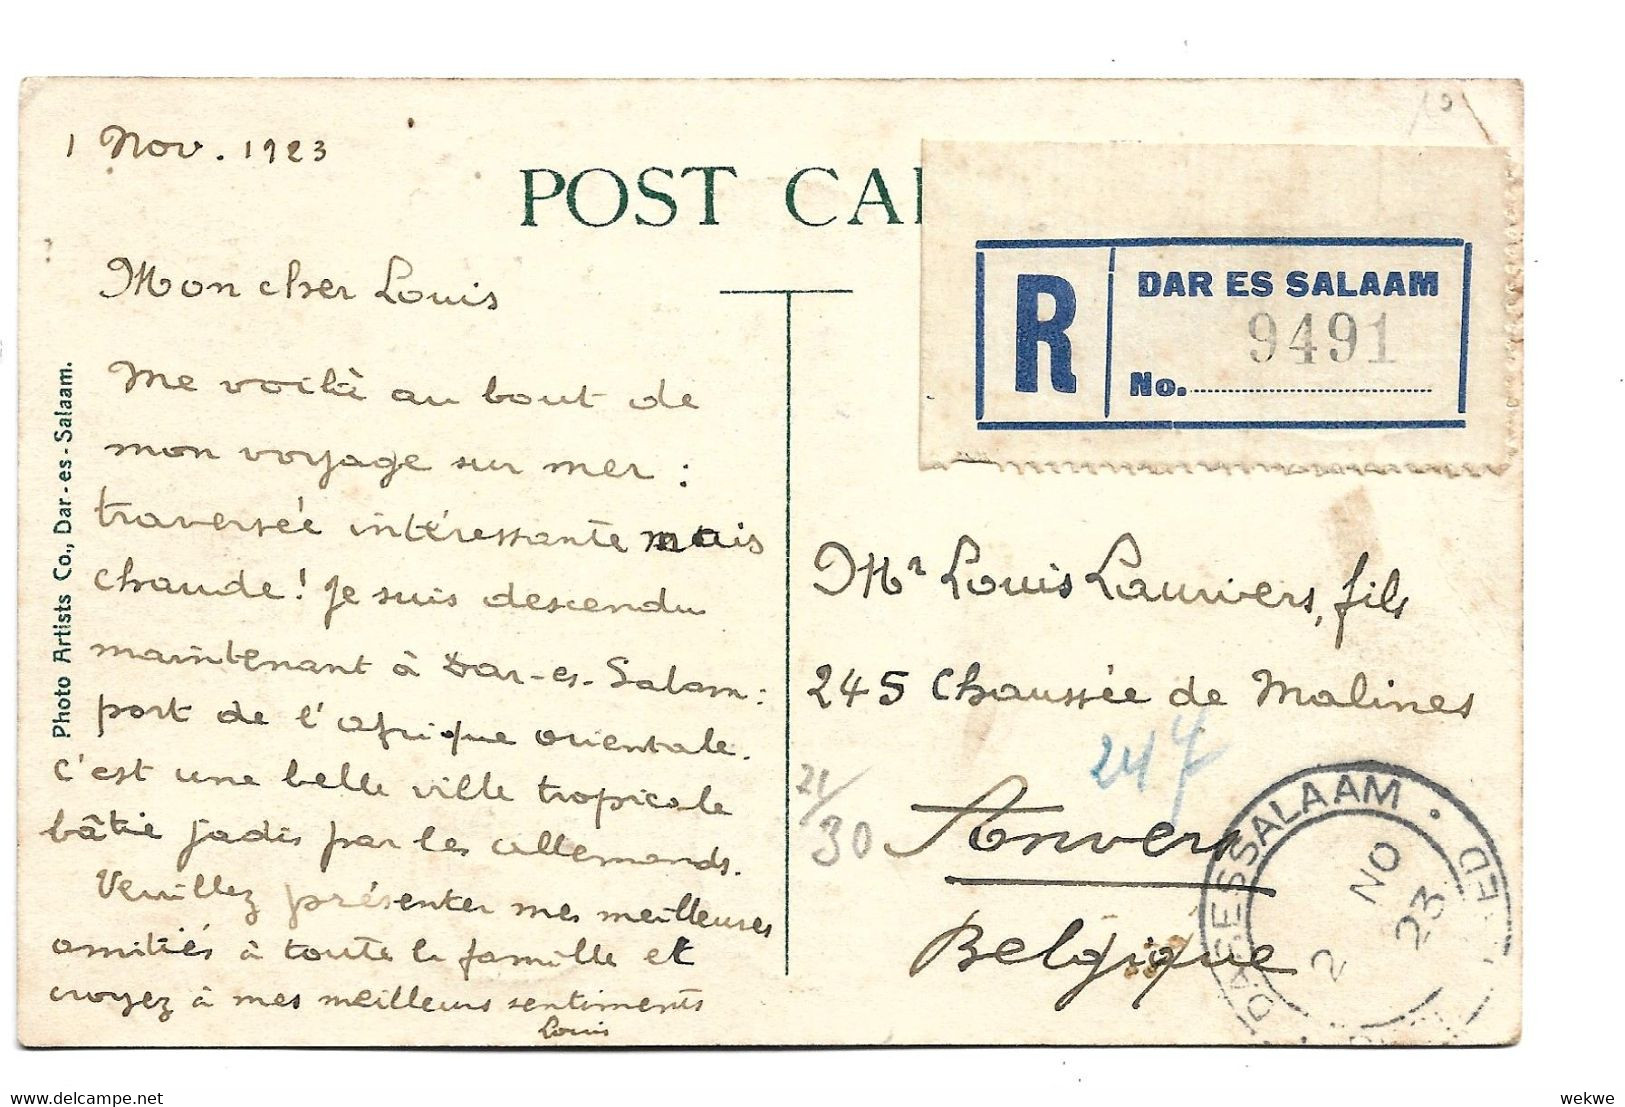 1 Nov. 1923
POST CA
Mon cher Louis
Me voilà au bout de
mon voyage sur mer :
traversée intéressante mais
chaude! Je suis descendu
maintenant à Dar-es-Salam :
port de l'Afrique orientale.
C'est une belle ville tropicale
bâtie jadis par les allemands.
Veuillez présenter mes meilleures
amitiés à toute la famille et
croyez à mes meilleurs sentiments
Louis
Photo Artists Co., Dar-es-Salaam.
R
DAR ES SALAAM
9491
No.
Mr Louis Lauwers, fils
245 Chaussée de Malines
247
21/30
Anvers
Belgique
DAR.ESSALAAM
2 NO
23
wekwe
www.delcampe.net